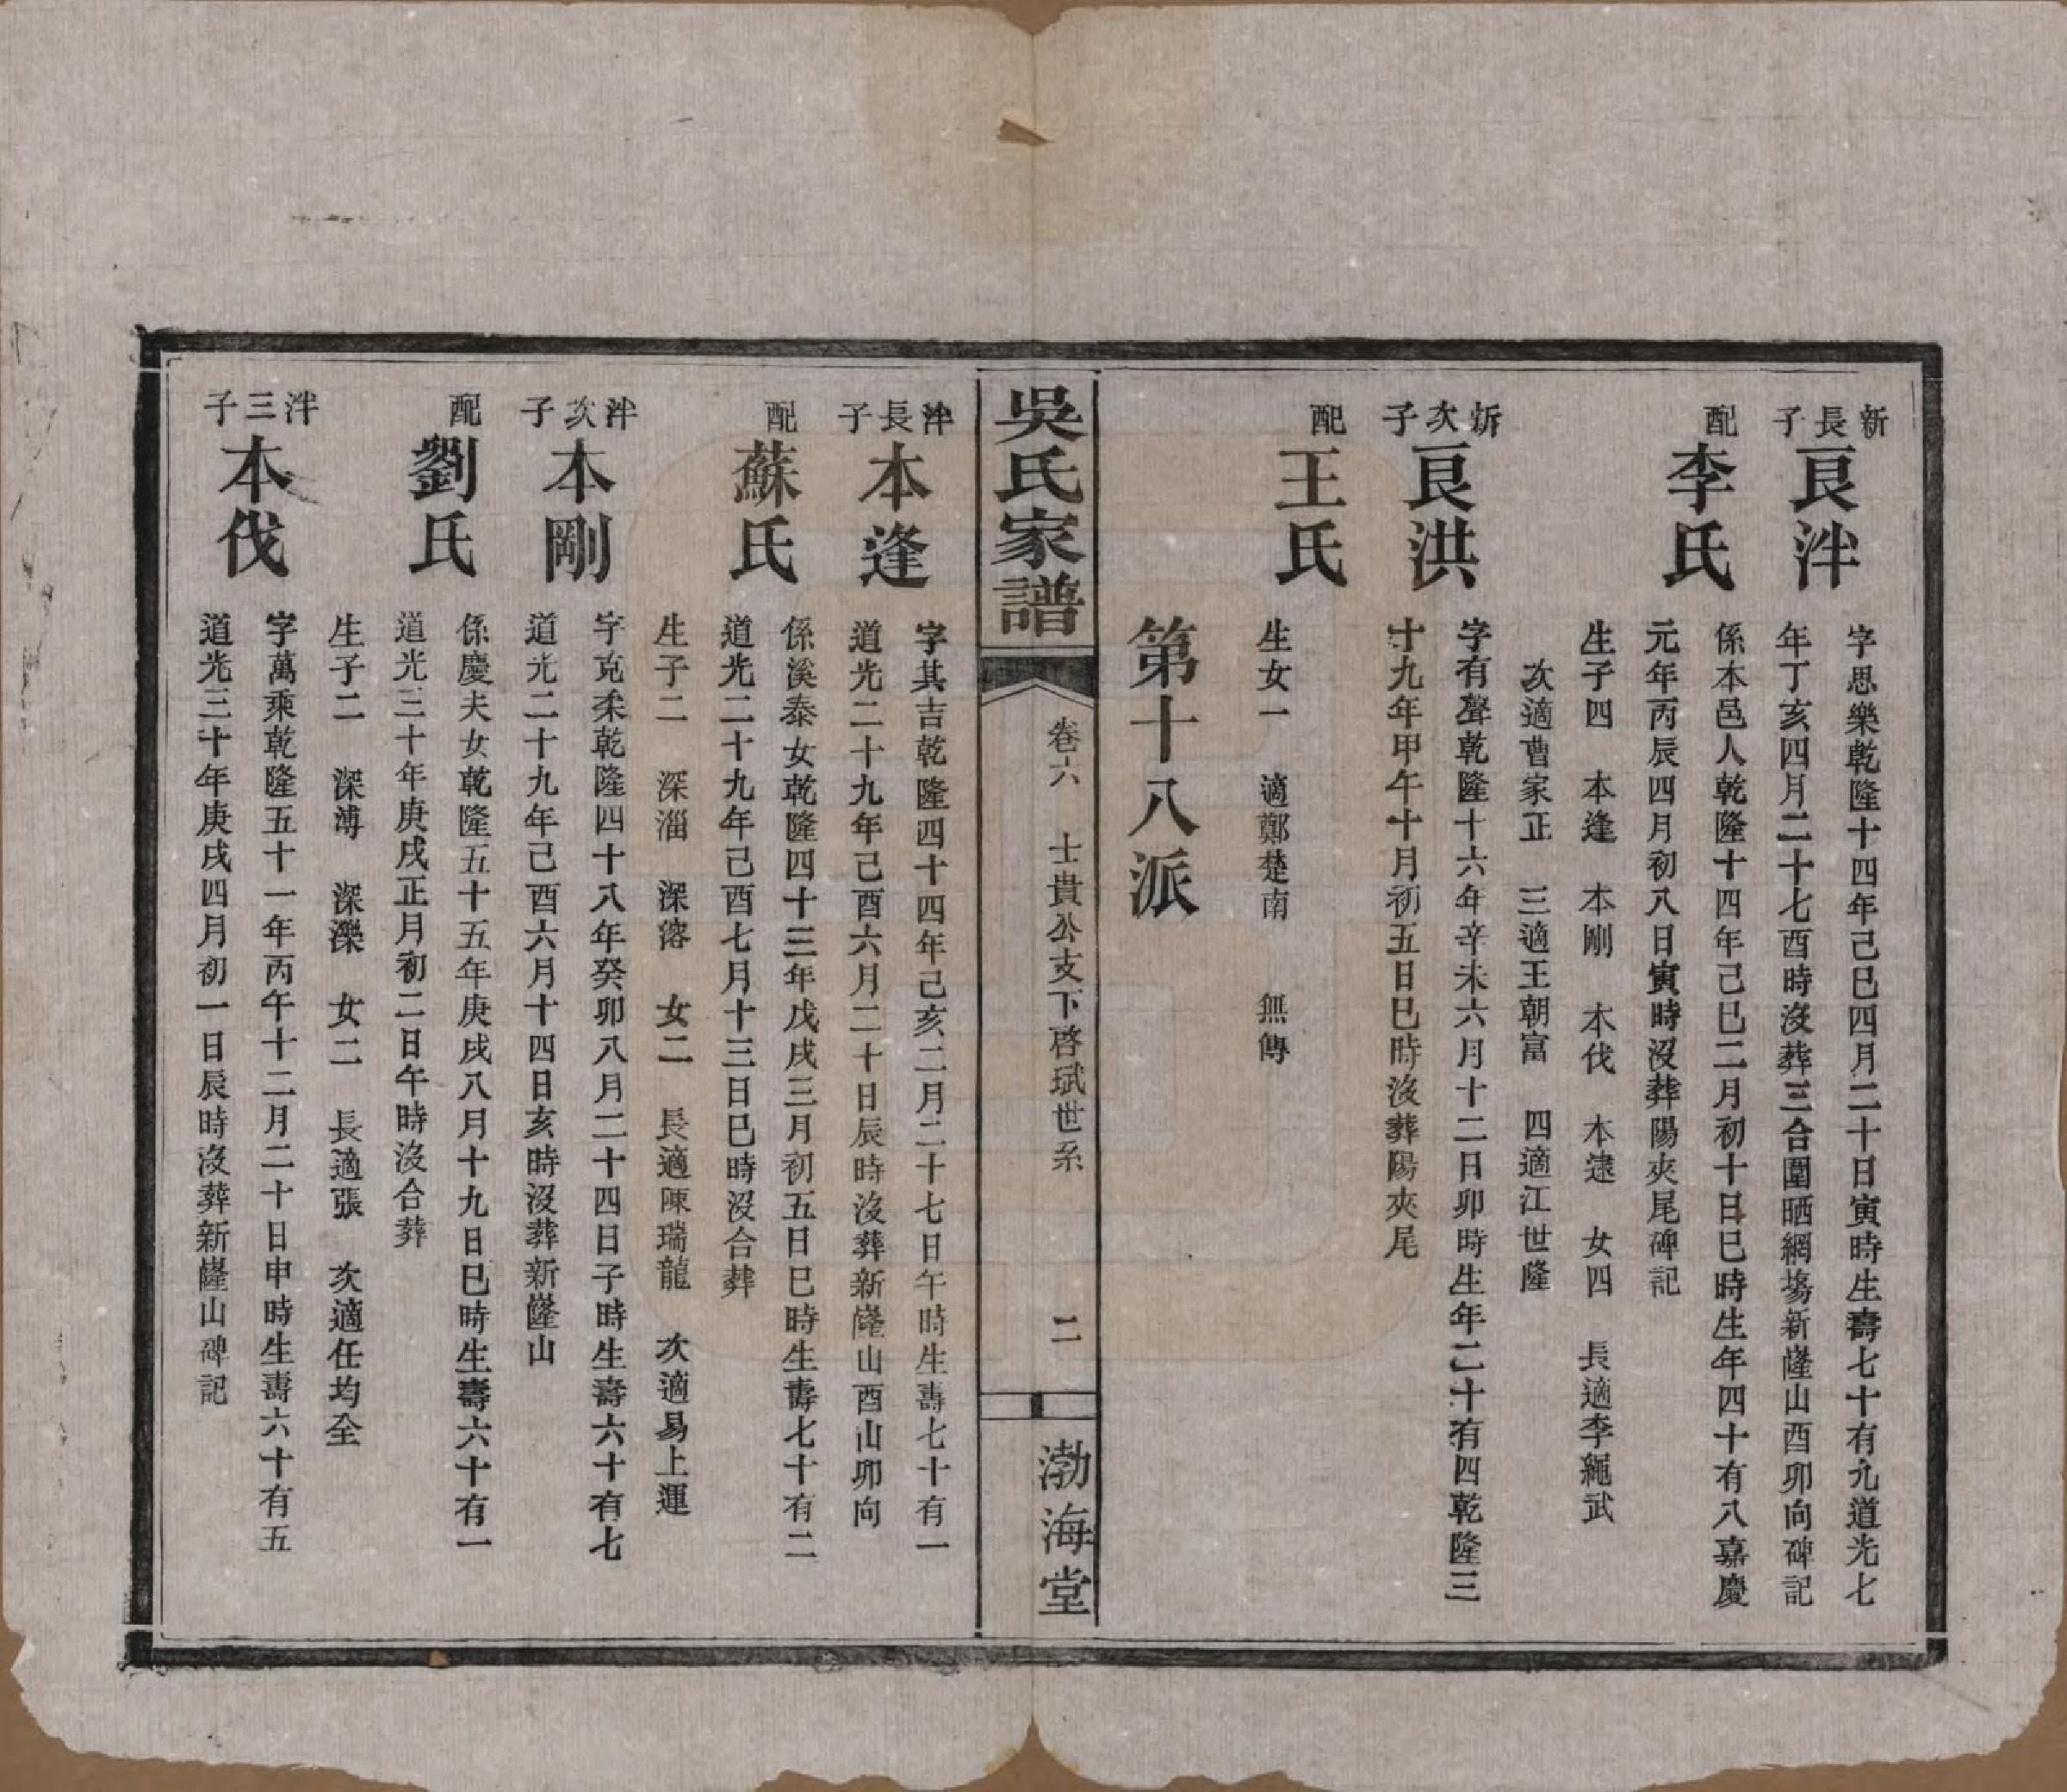 新長子
良泮
字思樂乾隆十四年己巳四月二十日寅時生壽七十有九道光七
年丁亥四月二十七酉時沒葬三合圍晒網塲新嶐山酉卯向碑記
配
李氏
係本邑人乾隆十四年己巳二月初十日巳時生年四十有八嘉慶
元年丙辰四月初八日寅時沒葬陽夾尾碑記
生子四 本逢 本剛 本伐 本逮 女四 長適李繩武
次適曹家正 三適王朝富 四適江世隆
炘次子
良洪
字有聲乾隆十六年辛未六月十二日卯時生年二十有四乾隆三
十九年甲午十月初五日巳時沒葬陽夾尾
配
王氏
生女一 適鄭楚南 無傳
第十八派
吳氏家譜
卷六 士貴公支下啓珷世系 二
渤海堂
泮長子
本逢
字其吉乾隆四十四年己亥二月二十七日午時生壽七十有一
道光二十九年己酉六月二十日辰時沒葬新嶐山酉山卯向
配
蘇氏
係溪泰女乾隆四十三年戊戌三月初五日巳時生壽七十有二
道光二十九年己酉七月十三日巳時沒合葬
生子二 深淄 深溶 女二 長適陳瑞龍 次適易上運
泮次子
本剛
字克柔乾隆四十八年癸卯八月二十四日子時生壽六十有七
道光二十九年己酉六月十四日亥時沒葬新嶐山
配
劉氏
係慶夫女乾隆五十五年庚戌八月十九日巳時生壽六十有一
道光三十年庚戌正月初二日午時沒合葬
生子二 深溥 深濼 女二 長適張 次適任均全
泮三子
本伐
字萬乘乾隆五十一年丙午十二月二十日申時生壽六十有五
道光三十年庚戌四月初一日辰時沒葬新嶐山碑記